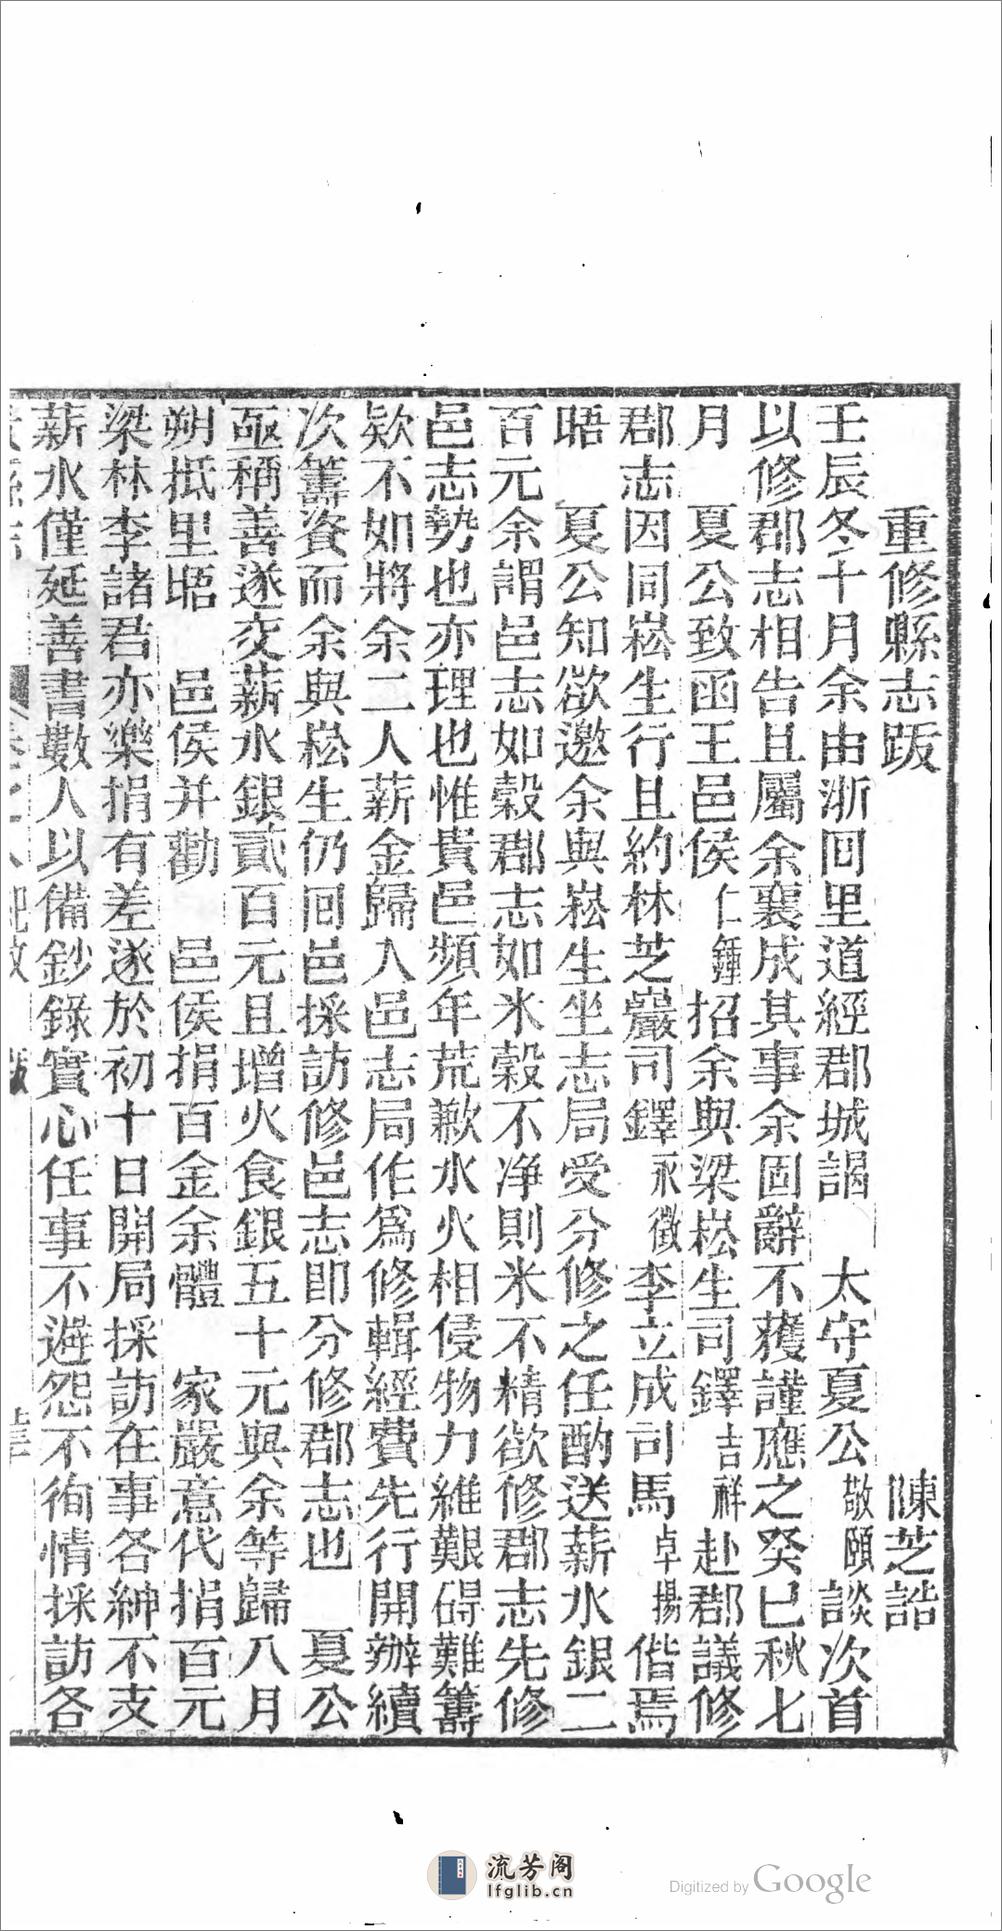 重修縣志跋 陳芝誥
壬辰冬十月余由浙回里道經郡城謁 太守夏公敬頤談次首
以修郡志相告且屬余襄成其事余固辭不獲謹應之癸巳秋七
月 夏公致函王邑侯仁鍾招余與梁崧生司鐸吉祥赴郡議修
郡志因同崧生行且約林芝巖司鐸永徵李立成司馬卓揚偕焉
晤 夏公知欲邀余與崧生坐志局受分修之任酌送薪水銀二
百元余謂邑志如穀郡志如米穀不净則米不精欲修郡志先修
邑志勢也亦理也惟貴邑頻年荒歉水火相侵物力維艱碍難籌
欵不如將余二人薪金歸入邑志局作爲修輯經費先行開辦續
次籌資而余與崧生仍回邑採訪修邑志即分修郡志也 夏公
亟稱善遂交薪水銀貳百元且增火食銀五十元與余等歸八月
朔抵里晤 邑侯并勸 邑侯捐百金余體 家嚴意代捐百元
梁林李諸君亦樂捐有差遂於初十日開局採訪在事各紳不支
薪水僅延善書數人以備鈔錄實心任事不避怨不徇情採訪各
流芳阁
lfglib.cn
Digitized by Google